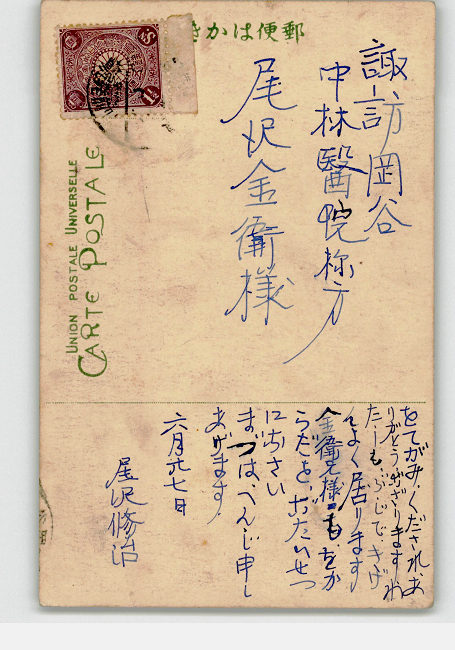 郵便はかき
UNION POSTALE UNIVERSELLE
CARTE POSTALE
諏訪岡谷
中林醫院様方
尾沢金衛様
をてがみ、くだされ、あ
りがとうござります わ
たーしも、ぶじで、きげ
んよく居ります
金衛兄様もをか
らだを、おたいせつ
になさい
まづは、へんじ申し
あげます
六月廿七日
尾沢修治